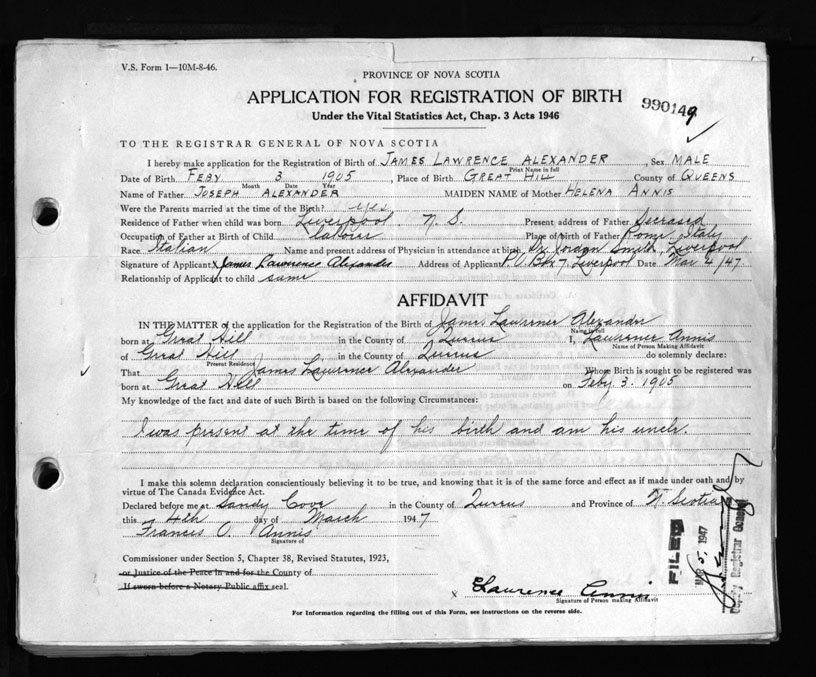 V.S. Form 1—10M-8-46.
PROVINCE OF NOVA SCOTIA
APPLICATION FOR REGISTRATION OF BIRTH
990149
Under the Vital Statistics Act, Chap. 3 Acts 1946
TO THE REGISTRAR GENERAL OF NOVA SCOTIA
I hereby make application for the Registration of Birth of JAMES LAWRENCE ALEXANDER, Sex MALE
Print Name in full
Date of Birth FEBY 3 1905, Place of Birth GREAT HILL County of QUEENS
Month Date Year
Name of Father JOSEPH ALEXANDER MAIDEN NAME of Mother HELENA ANNIS
Were the Parents married at the time of the Birth? yes
Residence of Father when child was born Liverpool. N.S. Present address of Father Deceased
Occupation of Father at Birth of Child labour Place of birth of Father Rome, Italy
Race Italian Name and present address of Physician in attendance at birth Dr Jordan Smith, Liverpool
Signature of Applicant X James Lawrence Alexander Address of Applicant P.O. Box 7, Liverpool Date Mar 4/47.
Relationship of Applicant to child same
AFFIDAVIT
IN THE MATTER of the application for the Registration of the Birth of James Lawrence Alexander
Name in full
born at Great Hill in the County of Queens I, Lawrence Annis
Name of Person Making Affidavit
of Great Hill in the County of Queens do solemnly declare:
Present Residence
That James Lawrence Alexander Whose Birth is sought to be registered was
born at Great Hill on Feby. 3. 1905
My knowledge of the fact and date of such Birth is based on the following Circumstances:
I was present at the time of his birth and am his uncle.
I make this solemn declaration conscientiously believing it to be true, and knowing that it is of the same force and effect as if made under oath and by
virtue of The Canada Evidence Act.
Declared before me at Sandy Cove in the County of Queens and Province of N. Scotia
this 4th day of March 1947
Francis O. Annis
Signature of
Commissioner under Section 5, Chapter 38, Revised Statutes, 1923,
or Justice of the Peace in and for the County of
If sworn before a Notary Public affix seal.
FILED
5, 1947
Deputy Registrar General
x Lawrence Annis
Signature of Person making Affidavit
For Information regarding the filling out of this Form, see instructions on the reverse side.